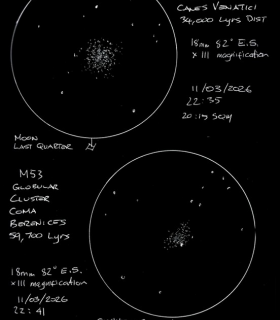 CANES VENATICI
34,000 Lyrs DIST
18mm 82° E.S.
x 111 magnification
11/03/2026
22:35
MOON
LAST QUARTER
M53
GLOBULAR
CLUSTER
COMA
BERENICES
59,700 Lyrs
18mm 82° E.S.
x 111 magnification
11/03/2026
22:41